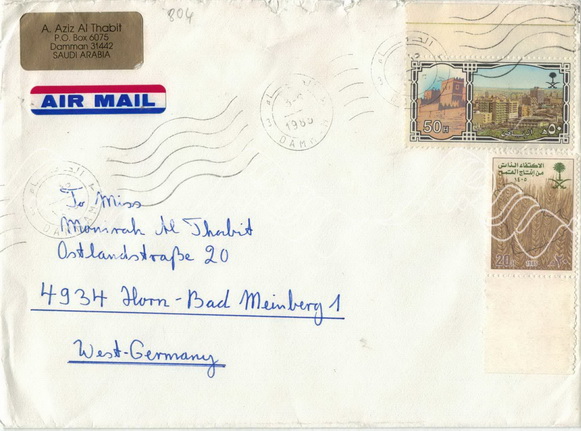 804
A. Aziz Al Thabit
P.O. Box 6075
Damman 31442
SAUDI ARABIA
AIR MAIL
1985
DAMMAM
50H ٥٠
الاكتفاء الذاتي
من إنتاج القمح
١٤٠٥
20
To Miss
Monirah Al Thabit
Ostlandstraße 20
4934 Horn-Bad Meinberg 1
West-Germany